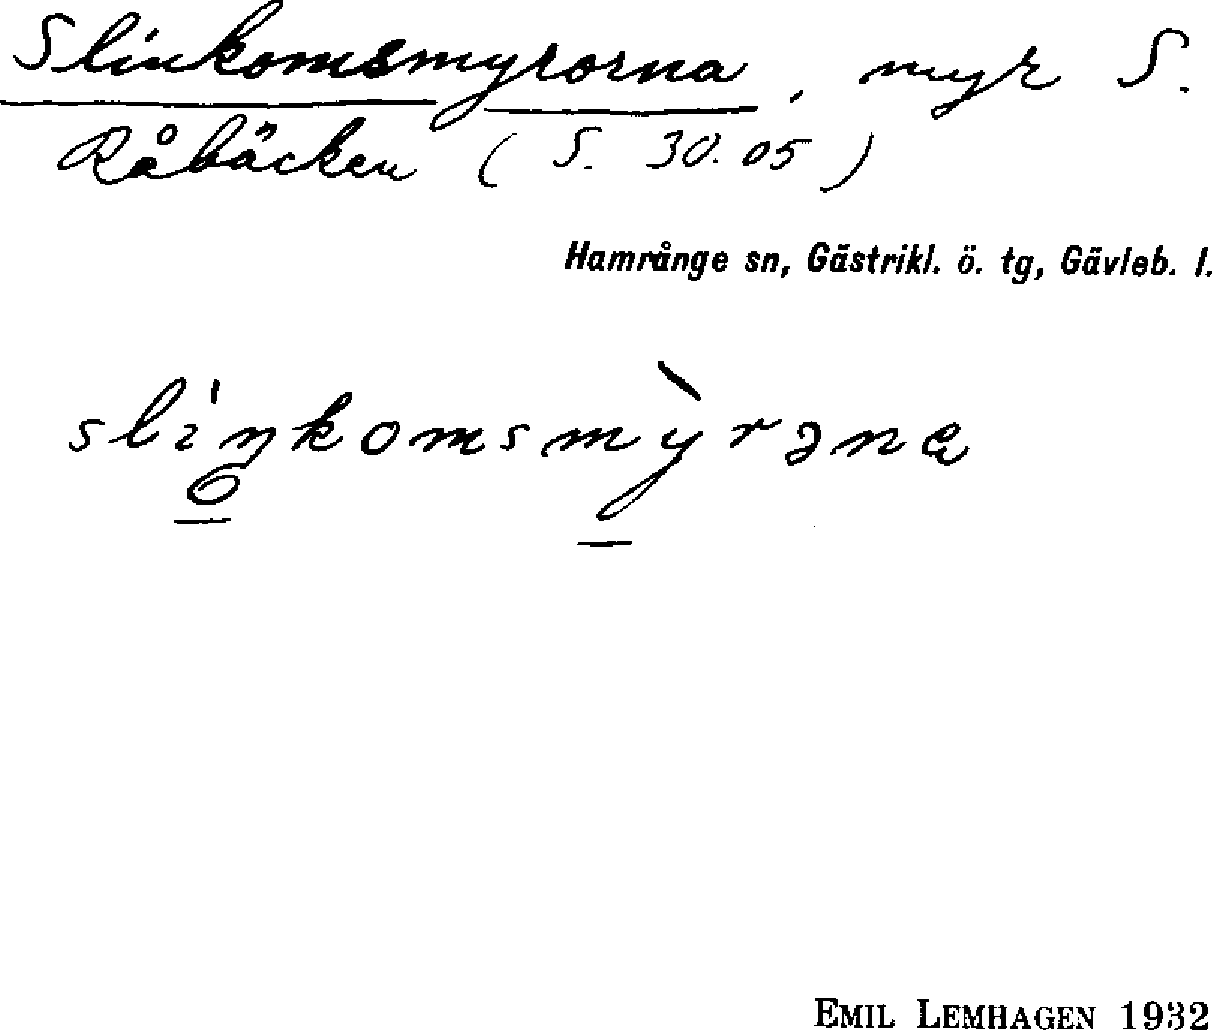 Slinkomsmyrorna, myr S.
Råbäcken (S. 30.05)
Hamrånge sn, Gästrikl. ö. tg, Gävleb. l.
sli̠ŋkomsmỳ̠rəna
EMIL LEMHAGEN 1932